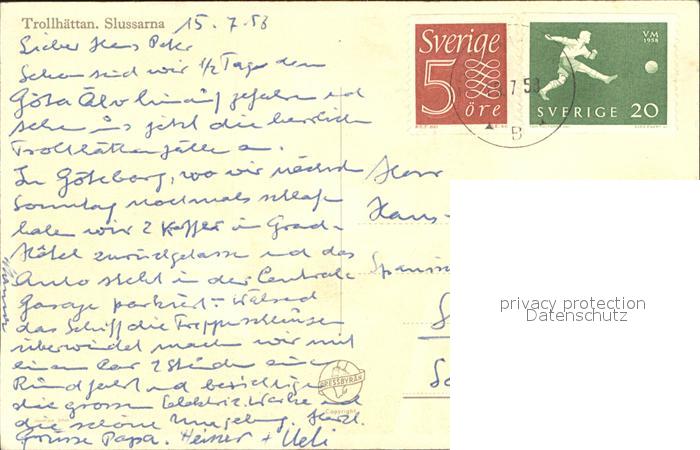 Trollhättan. Slussarna 15.7.58
Lieber Hans Peter
Schon sind wir 1/2 Tage den
Göta Älv hinauf gefahren und
sehen uns jetzt die herrlichen
Trollhättenfälle an.
In Göteborg, wo wir nächsten
Sonntag nochmals schlafen
haben wir 2 Koffer im Grand-
Hôtel zurückgelassen und das
Auto steht in der Centrale
Garage parkiert. Während
das Schiff die Treppenschleusen
überwindet machen wir mit
einem Car 2 Stunden eine
Rundfahrt und besichtigen
die grossen Elektriz. Werke und
die schöne Umgebung. Herzl.
Grüsse Papa. Heiner + Ueli
Sverige
5
öre
VM
1958
SVERIGE 20
7 58
B
Herr
Hans-
PRESSBYRÅN
Copyright
privacy protection
Datenschutz